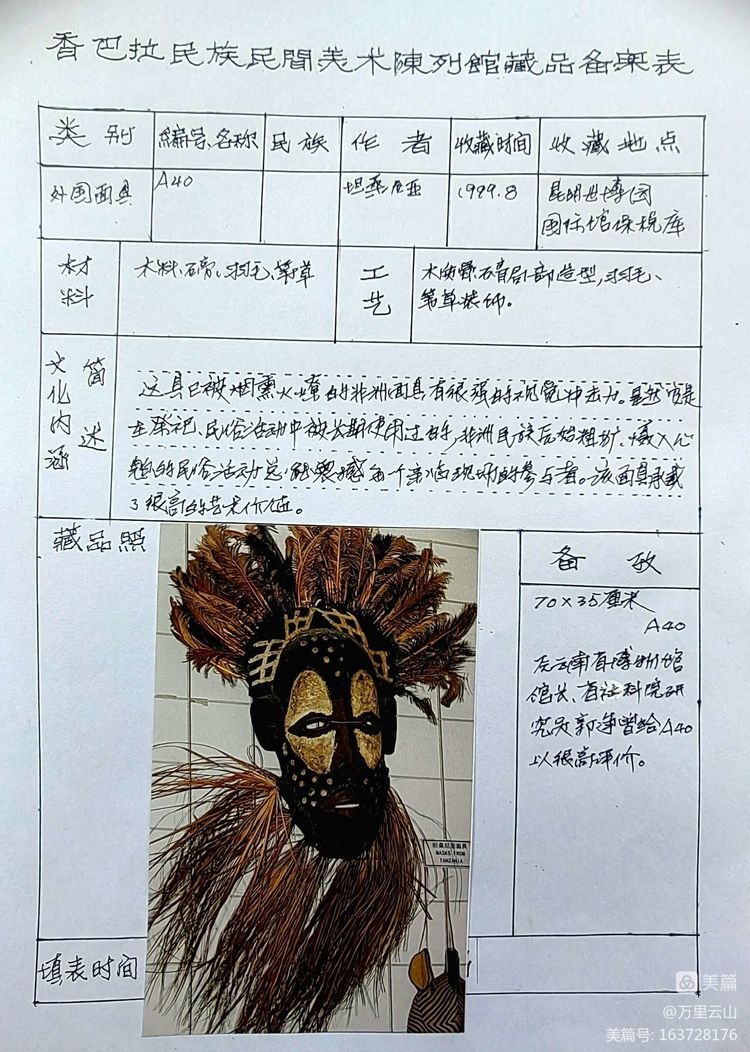 香巴拉民族民間美术陳列館藏品备案表
类别 編号、名称 民族 作者 收藏时间 收藏地点
外国面具 A40 坦桑尼亚 1999.8 昆明世博园
国际馆保税库
材料 木料、石膏、羽毛、 工艺 木雕 石膏局部造型,羽毛、
草装饰。
文化内涵 简述
这具已被烟熏火燎的非洲面具有很强的视觉冲击力。显然它是
在祭祀、民俗活动中被长期使用过的,非洲民族原始粗犷、慑人心
魄的民俗活动总能震撼每个亲临现场的参与者。该面具承载
了很高的艺术价值。
藏品照 备
70×35厘米
A40
云南省博物馆
馆长、省社科院研
究员郭净曾给A40
以很高评价。
坦桑尼亚面具
MASKS FROM
TANZANIA
填表时间
美篇
@万里云山
美篇号: 163728176